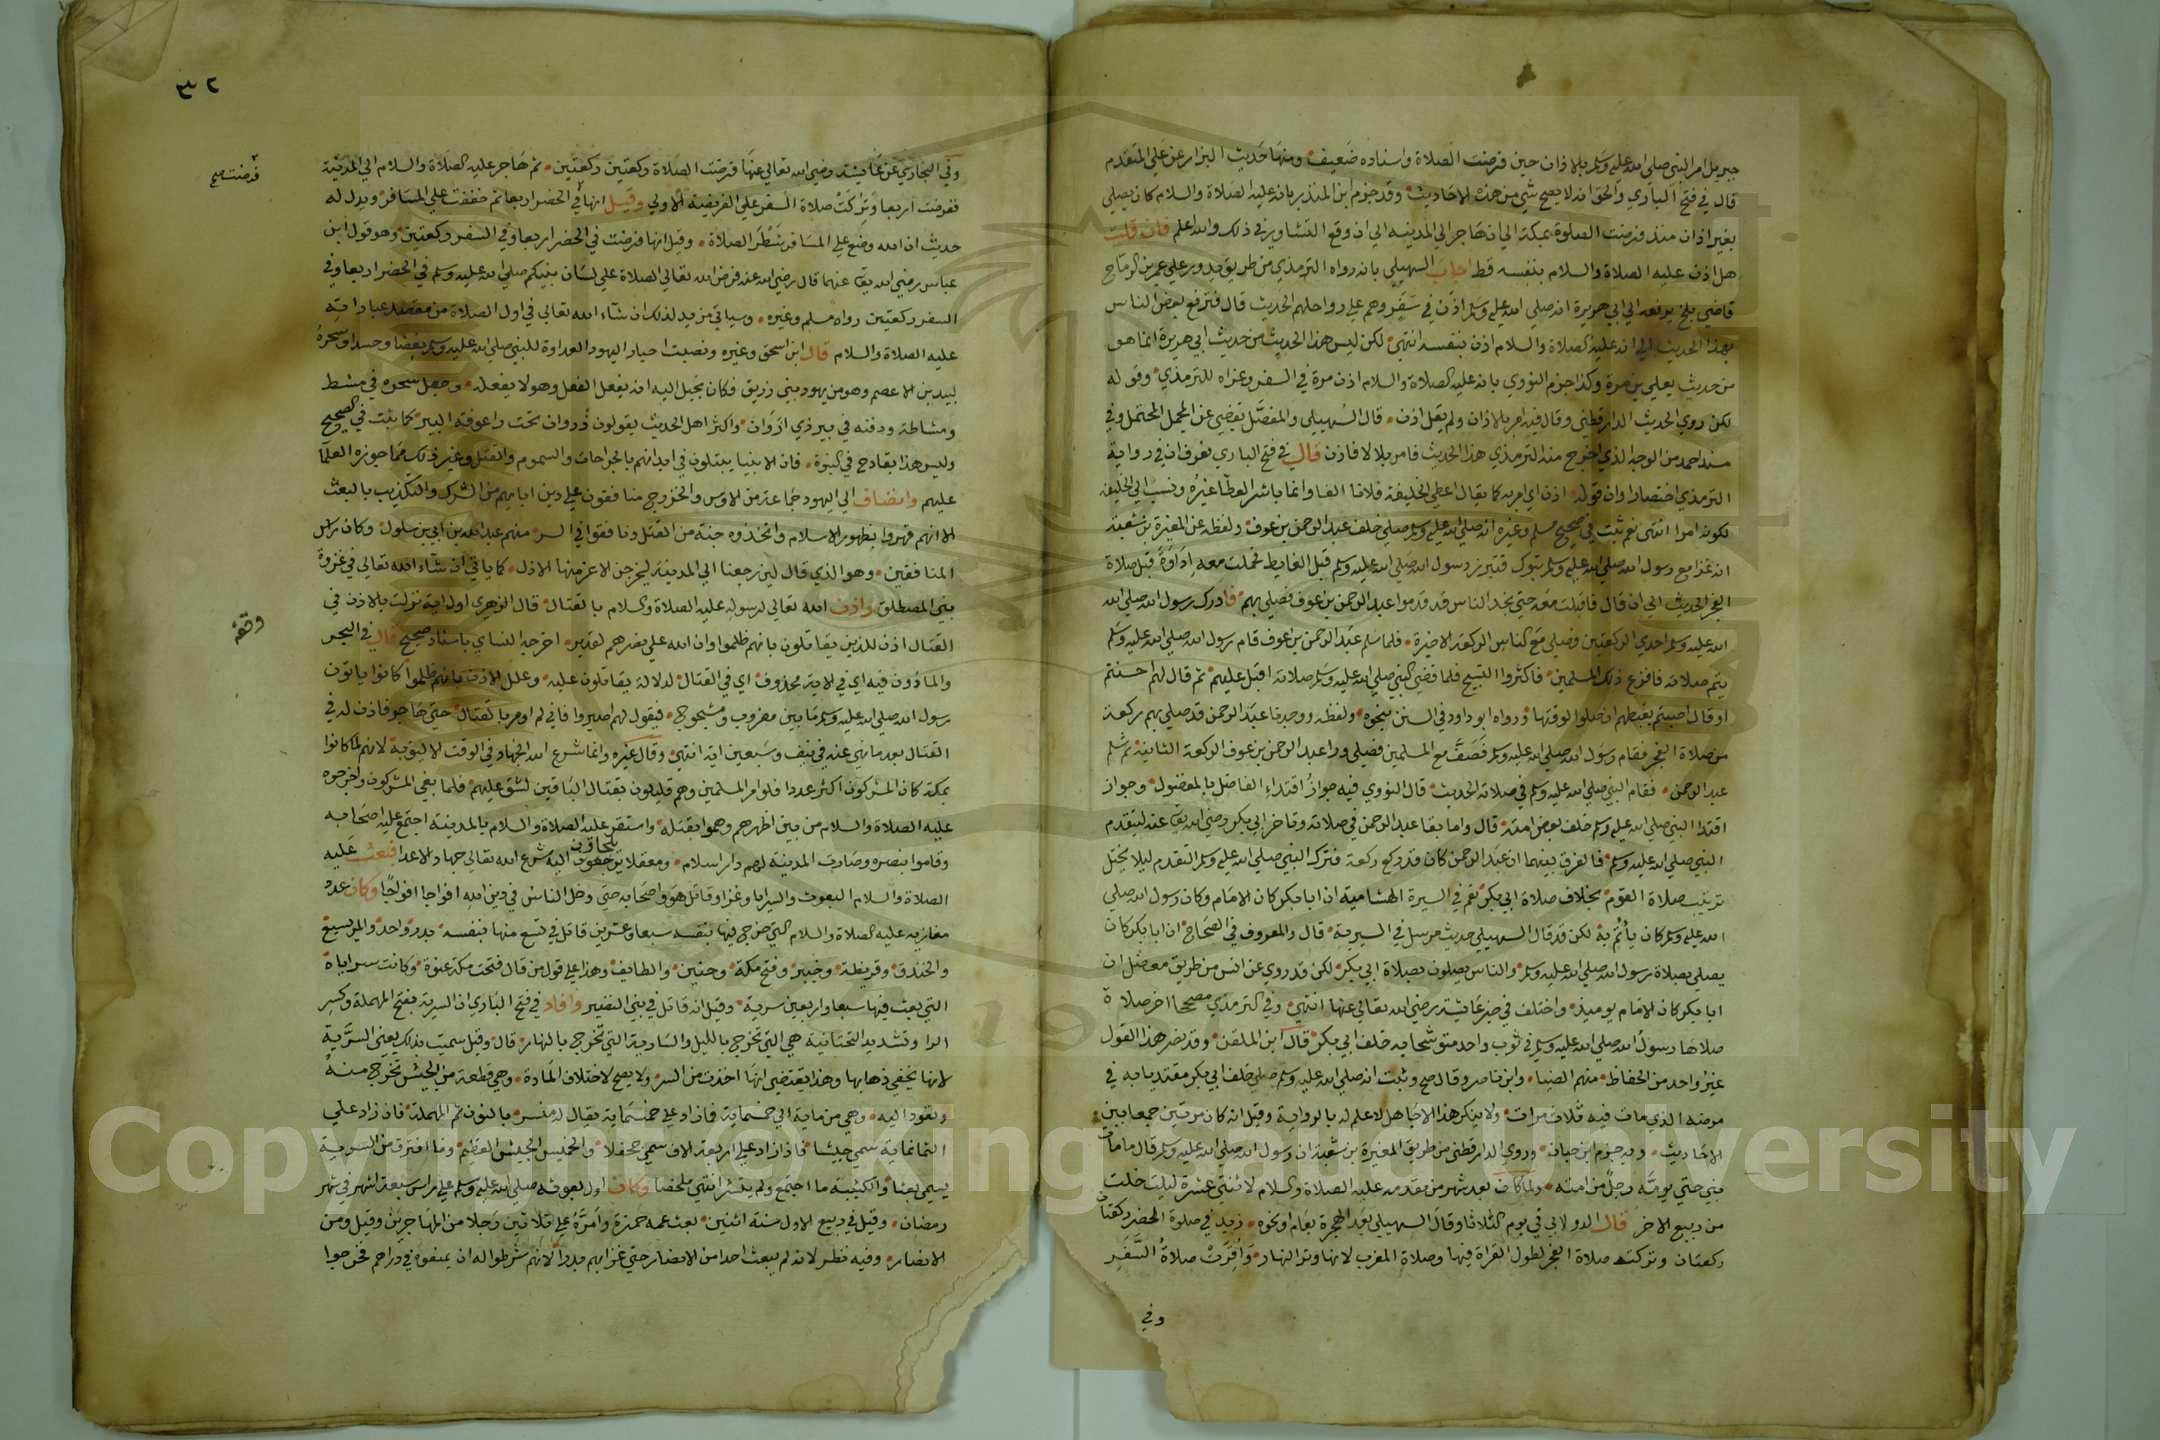 جبريل امر النبي صلى الله عليه وسلم بالاذان حين فرضت الصلاة واسناده ضعيف ومنها حديث البزار عن علي المتقدم
قال في فتح الباري والحق انه لا يصح شي من هذه الاحاديث وقد جزم ابن المنذر بانه عليه الصلاة والسلام كان يصلي
بغير اذان منذ فرضت الصلوة بمكة الي ان هاجر الي المدينه الي ان وقع التشاور في ذلك والله اعلم فان قلت
هل اذن عليه الصلاة والسلام بنفسه قط اجاب السهيلي بانه رواه الترمذي من طريق يدور علي عمر بن الرماح
قاضي بلخ يرفعه الي ابي هريرة انه صلي الله عليه وسلم اذن في سفر وهم علي رواحلهم الحديث قال فنزع بعض الناس
بهذا الحديث الي انه عليه الصلاة والسلام اذن بنفسه انتهي لكن ليس هذا الحديث من حديث ابي هريرة انما هو
من حديث يعلي بن مرة وكذا جزم النووي بانه عليه الصلاة والسلام اذن مرة في السفر وعزاه للترمذي وقوله
لكن روي الحديث الدارقطني وقال فيه امر بالاذان ولم يقل اذن قال السهيلي والمفصل يقضي عن المجمل المحتمل وفي
مسند احمد من الوجه الذي اخرج منه الترمذي هذا الحديث فامر بلالا فاذن قال في فتح الباري فعرف ان في رواية
الترمذي اختصارا وان قوله اذن اي امر به كما يقال اعطي الخليفة فلانا الفا وانما باشر العطا غيره ونسب الي الخليفة
لكونه امرا انتهي نعم ثبت في صحيح مسلم وغيره انه صلي الله عليه وسلم صلي خلف عبد الرحمن بن عوف ولفظه عن المغيرة بن شعبة
انه غزا مع رسول الله صلي الله عليه وسلم تبوك فتبرز رسول الله صلي الله عليه وسلم قبل الغايط فحملت معه اداوة قبل صلاة
الفجر الحديث الي ان قال فاقبلت معه حتي نجد الناس قد قدموا عبد الرحمن بن عوف فصلي بهم فادرك رسول الله صلي الله
الله عليه وسلم احدي الركعتين فصلي مع الناس الركعة الاخيرة فلما سلم عبد الرحمن بن عوف قام رسول الله صلي الله عليه وسلم
يتم صلاته فافزع ذلك المسلمين فاكثروا التسبيح فلما قضي النبي صلي الله عليه وسلم صلاته اقبل عليهم ثم قال لهم احسنتم
او قال اصبتم يغبطهم ان صلوا لوقتها ورواه ابو داود في السنن بنحوه ولفظه ووجدنا عبد الرحمن قد صلي بهم ركعة
من صلاة الفجر فقام رسول الله صلي الله عليه وسلم فصف مع المسلمين فصلي ورا عبد الرحمن بن عوف الركعة الثانية ثم سلم
عبد الرحمن فقام النبي صلي الله عليه وسلم في صلاته الحديث قال النووي فيه جواز اقتداء الفاضل بالمفضول وجواز
اقتدا النبي صلي الله عليه وسلم خلف بعض امته قال واما بقا عبد الرحمن في صلاته وتاخر ابي بكر رضي الله تع عنه ليتقدم
النبي صلي الله عليه وسلم فالفرق بينهما ان عبد الرحمن كان قد ركع ركعة فترك النبي صلي الله عليه وسلم التقدم ليلا يختل
ترتيب صلاة القوم بخلاف صلاة ابي بكر نعم في السيرة الهشامية ان ابا بكر كان الامام وكان رسول الله صلي
الله عليه وسلم كان يأتم به لكن قد قال السهيلي حديث مرسل في السيرية قال والمعروف في الصحاح ان ابا بكر كان
يصلي بصلاة رسول الله صلي الله عليه وسلم والناس يصلون بصلاة ابي بكر لكن قد روي عن انس من طريق معضل ان
ابا بكر كان الامام يوميذ واختلف في خبر عايشة رضي الله تعالي عنها انتهي وفي الترمذي مصححا اخر صلاة
صلاها رسول الله صلي الله عليه وسلم في ثوب واحد متوشحا به خلف ابي بكر قال ابن الملقن وقد نصر هذا القول
غير واحد من الحفاظ منهم الضيا وابن ناصر وقال صح وثبت انه صلي الله عليه وسلم صلي خلف ابي بكر مقتديا به في
مرضه الذي مات فيه ثلاث مرات ولا ينكر هذا الا جاهل لا علم له بالرواية وقيل انه كان مرتين جمعا بين
الاحاديث وبه جزم ابن حبان وروي الدارقطني من طريق المغيرة بن شعبة ان رسول الله صلي الله عليه وسلم قال ما مات
نبي حتي يومه رجل من امته ولما كان بعد شهر من مقدمه عليه الصلاة والسلام لاثنتي عشرة ليلة خلت
من ربيع الاخر قال الدولابي في يوم الثلاثا وقال السهيلي بعد الهجرة بعام او نحوه زيد في صلوة الحضر ركعتان
ركعتان وتركت صلاة الفجر لطول القراة فيها وصلاة المغرب لانها وتر النهار واقرت صلاة السفر
وفي
٣٢
وفي البخاري عن عايشة رضي الله تعالي عنها فرضت الصلاة ركعتين ركعتين ثم هاجر عليه الصلاة والسلام الي المدينة
فرضت صح
ففرضت اربعا وتركت صلاة السفر علي الفريضة الاولي وقيل انها في الحضر اربعا ثم خففت علي المسافر ويدل له
حديث ان الله وضع علي المسافر شطر الصلاة وقيل انها فرضت في الحضر اربعا وفي السفر ركعتين وهو قول ابن
عباس رضي الله تع عنهما قال رضي الله عنه فرض الله تعالي الصلاة علي لسان نبيكم صلي الله عليه وسلم في الحضر اربعا وفي
السفر ركعتين رواه مسلم وغيره وسياتي مزيد لذلك ان شاء الله تعالي في اول الصلاة من مقصد عباداته
عليه الصلاة والسلام قال ابن اسحق وغيره ونصبت احبار اليهود العداوة للنبي صلي الله عليه وسلم بغضا وحسدا وسحره
لبيد بن الاعصم وهو من يهود بني زريق فكان يخيل اليه انه يفعل الفعل وهو لا يفعله وجعل سحره في مشط
ومشاطة ودفنه في بير ذي اروان واكثر اهل الحديث يقولون ذروان تحت راعوفة البير كما ثبت في الصحيح
وليس هذا بقادح في النبوة فان الانبيا يبتلون في ابدانهم بالجراحات والسموم والقتل وغير ذلك مما جوزه العلما
عليهم وانضاف الي اليهود جماعة من الاوس والخزرج منافقون علي دين ابايهم من الشرك والتكذيب بالبعث
الا انهم قهروا بظهور الاسلام واتخذوه جنة من القتل ونافقوا في السر منهم عبد الله بن ابي بن سلول وكان راس
المنافقين وهو الذي قال لين رجعنا الي المدينة ليخرجن الاعز منها الاذل كما ياتي ان شاء الله تعالي في غزوة
بني المصطلق واذن الله تعالي لرسوله عليه الصلاة والسلام بالقتال قال الزهري اول اية نزلت بالاذن في
وقفه
القتال اذن للذين يقاتلون بانهم ظلموا وان الله علي نصرهم لقدير اخرجه النساي باسناد صحيح قال في البحر
والماذون فيه اي في الاية محذوف اي في القتال لدلالة يقاتلون عليه وعلل الاذن بانهم ظلموا كانوا ياتون
رسول الله صلي الله عليه وسلم ما بين مضروب ومشجوج فيقول لهم اصبروا فاني لم اومر بالقتال حتي هاجر فاذن له في
القتال بعد ما نهي عنه في نيف وسبعين اية انتهي وقال غيره وانما شرع الله الجهاد في الوقت الاليق به لانهم لما كانوا
بمكة كان المشركون اكثر عددا فلو امر المسلمين وهم قليلون بقتال الباقين لشق عليهم فلما بغي المشركون واخرجوه
عليه الصلاة والسلام من بين اظهرهم وهموا بقتله واستقر عليه الصلاة والسلام بالمدينة اجتمع عليه اصحابه
وقاموا بنصره وصارت المدينة لهم دار اسلام ومعقلا يلجاون اليه شرع الله تعالي جهاد الاعدا فبعث عليه
الصلاة والسلام البعوث والسرايا وغزا وقاتل هو واصحابه حتي دخل الناس في دين الله افواجا افواجا وكان عدد
مغازيه عليه الصلاة والسلام التي خرج فيها بنفسه سبعا وعشرين قاتل في تسع منها بنفسه بدر واحد والمريسيع
والخندق وقريظة وخيبر وفتح مكة وحنين والطايف وهذا علي قول من قال فتحت مكة عنوة وكانت سراياه
التي بعث فيها سبعا واربعين سرية وقيل انه قاتل في بني النضير وافاد في فتح الباري ان السرية بفتح المهملة وكسر
الرا وتشديد التحتانية هي التي تخرج بالليل والسارية التي تخرج بالنهار قال وقيل سميت بذلك يعني السرية
لانها تخفي ذهابها وهذا يقتضي انها اخذت من السر ولا يصح لاختلاف المادة وهي قطعة من الجيش تخرج منه
وتعود اليه وهي من ماية الي خمسماية فما زاد علي خمسماية يقال له منسر بالنون ثم المهملة فان زاد علي
الثمانماية سمي جيشا فاذا زاد علي اربعة الاف سمي جحفلا والخميس الجيش العظيم وما افترق من السرية
يسمي بعثا والكتيبة ما اجتمع ولم ينتشر انتهي ملخصا وكان اول بعوثه صلي الله عليه وسلم علي راس سبعة اشهر في شهر
رمضان وقيل في ربيع الاول سنة اثنين بعث عمه حمزة وامره علي ثلاثين رجلا من المهاجرين وقيل ومن
الانصار وفيه نظر لانه لم يبعث احدا من الانصار حتي غزا بهم بدرا لانهم شرطوا له ان يمنعوه في دراهم فخرجوا
Copyright © King Saud University